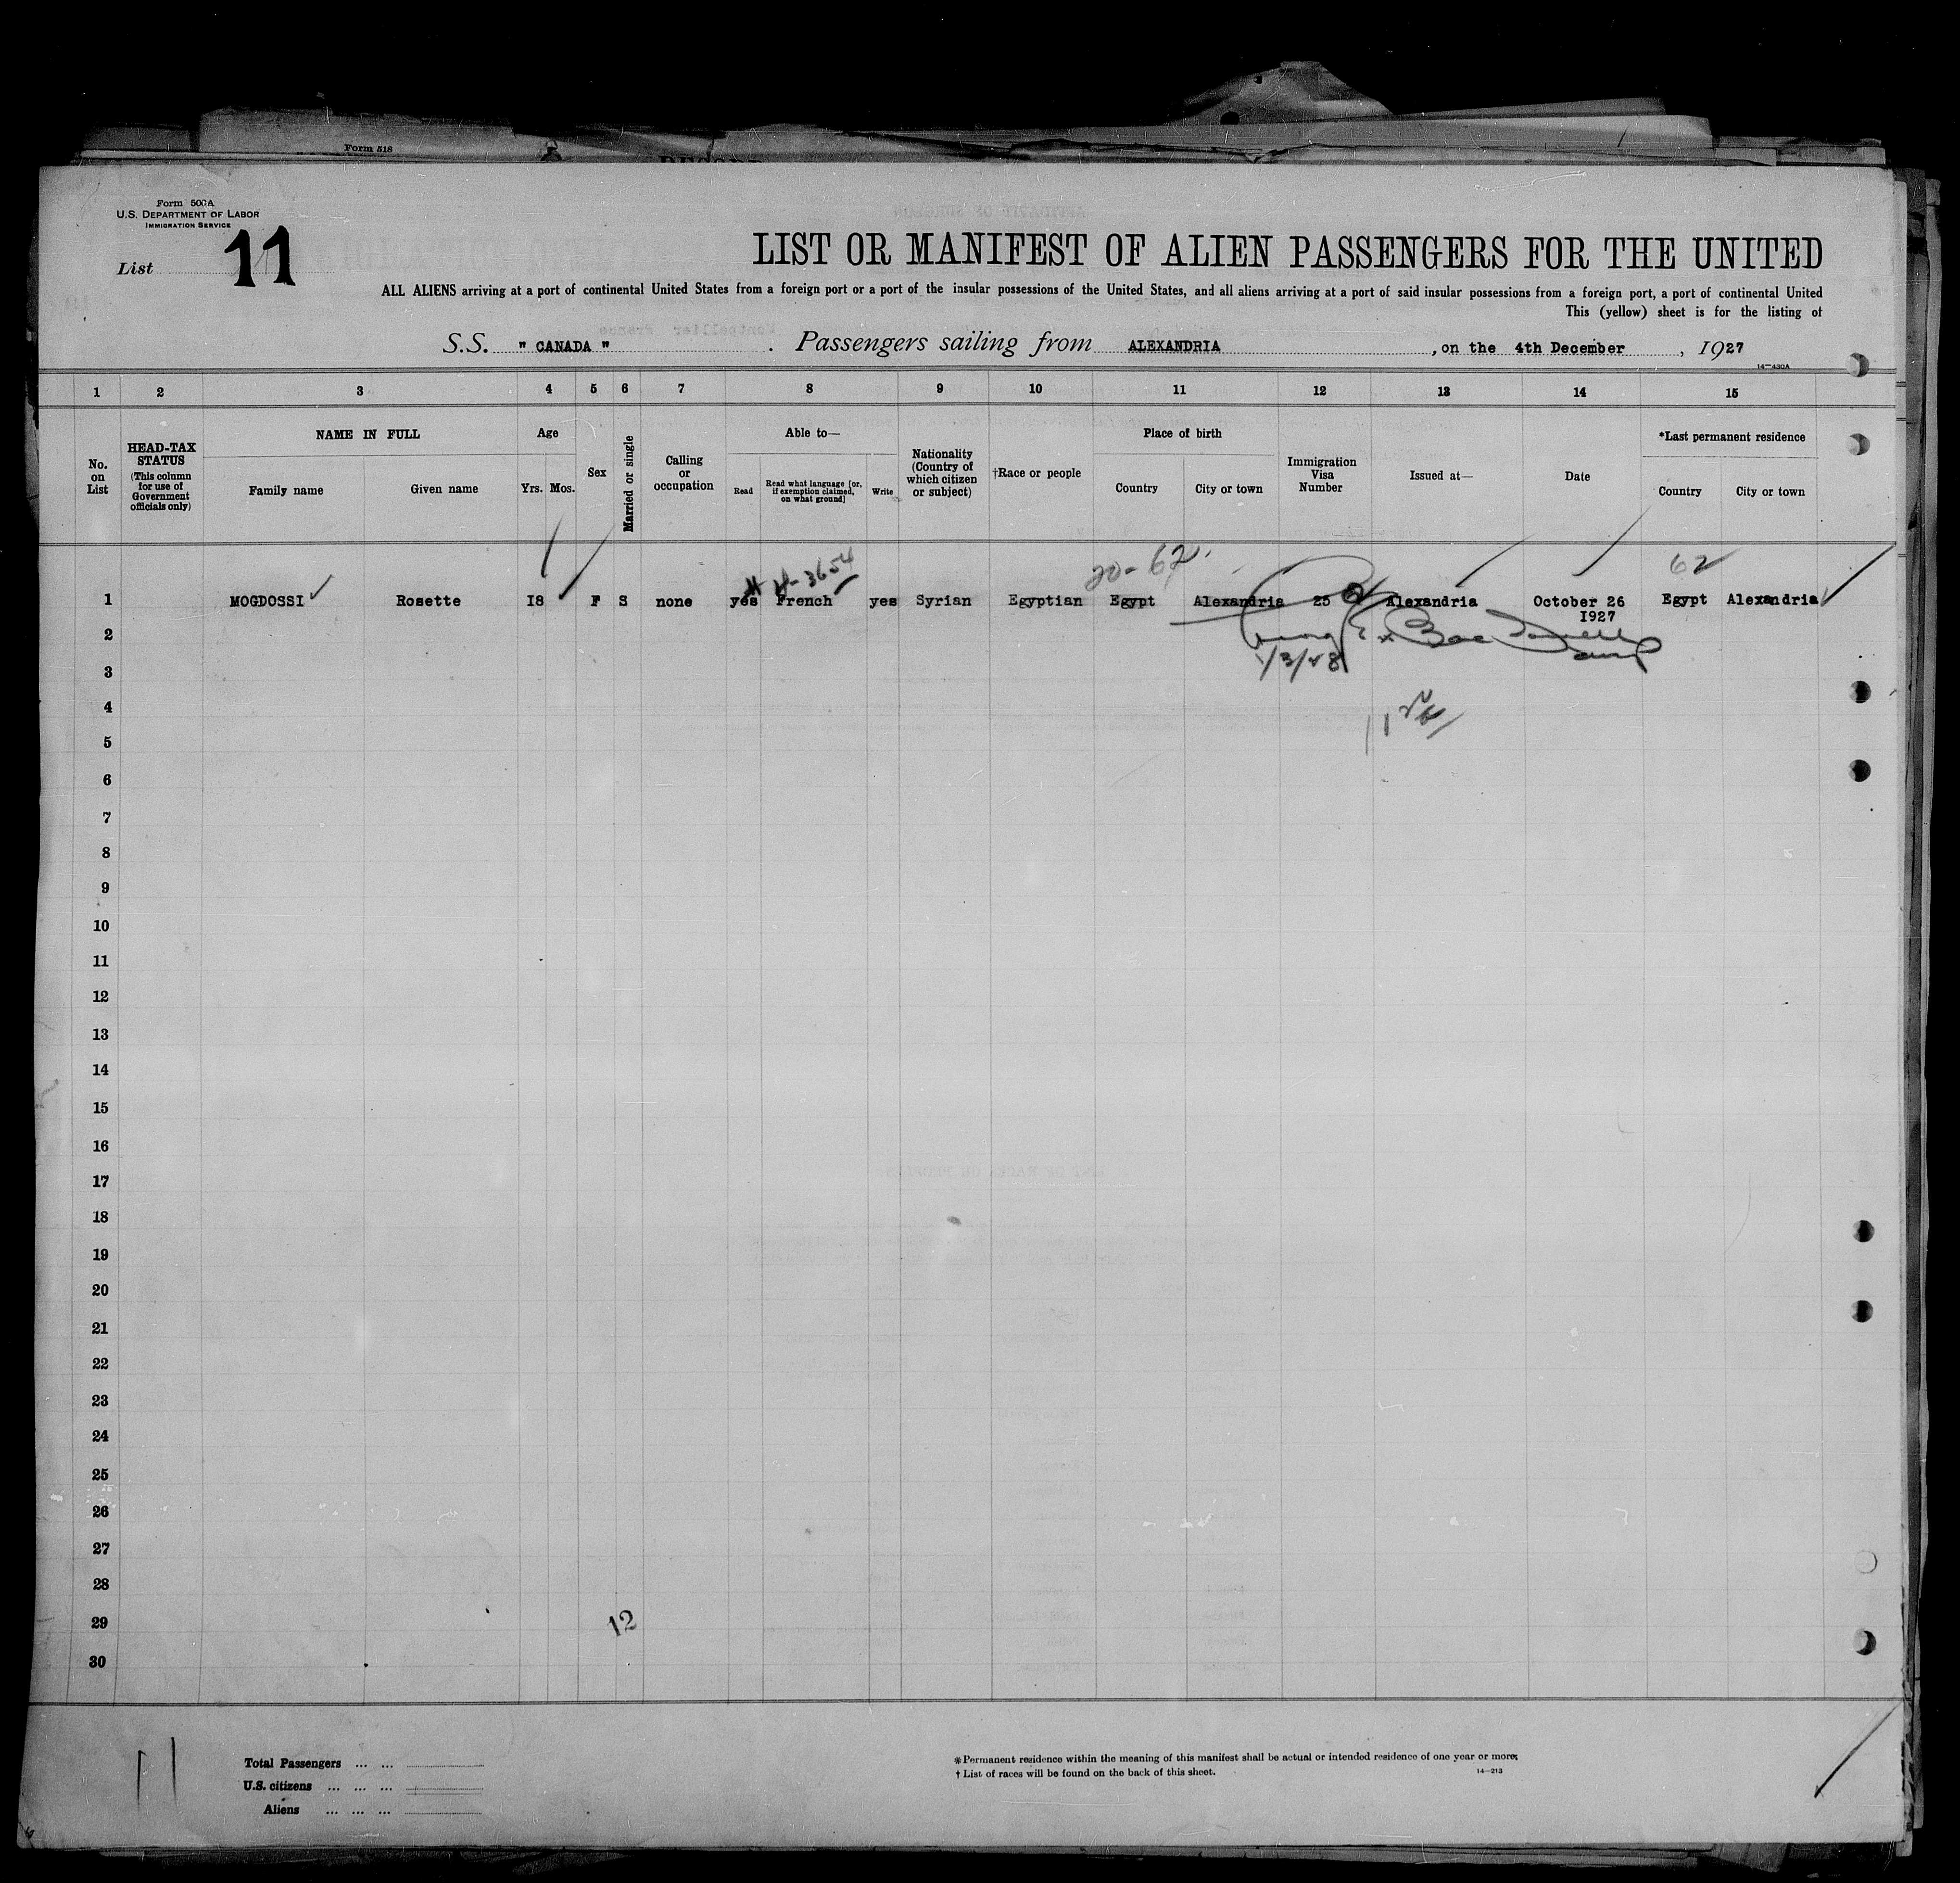 Form 518
Form 500A
U.S. DEPARTMENT OF LABOR
IMMIGRATION SERVICE
List 11
LIST OR MANIFEST OF ALIEN PASSENGERS FOR THE UNITED
ALL ALIENS arriving at a port of continental United States from a foreign port or a port of the insular possessions of the United States, and all aliens arriving at a port of said insular possessions from a foreign port, a port of continental United
This (yellow) sheet is for the listing of
S.S. " CANADA " . Passengers sailing from ALEXANDRIA , on the 4th December , 1927
14—430A
1 2 3 4 5 6 7 8 9 10 11 12 13 14 15
No. on List
HEAD-TAX STATUS
(This column for use of Government officials only)
NAME IN FULL
Family name Given name
Age
Yrs. Mos.
Sex
Married or single
Calling or occupation
Able to—
Read
Read what language [or, if exemption claimed, on what ground]
Write
Nationality (Country of which citizen or subject)
†Race or people
Place of birth
Country City or town
Immigration Visa Number
Issued at—
Date
*Last permanent residence
Country City or town
20-62 62
1 MOGDOSSI Rosette I8 F S none yes French yes Syrian Egyptian Egypt Alexandria 25 Alexandria October 26 I927 Egypt Alexandria
2
1/3/28
3
4
5
6
7
8
9
10
11
12
13
14
15
16
17
18
19
20
21
22
23
24
25
26
27
28
29
12
30
11
Total Passengers ... ...
U.S. citizens ... ... ...
Aliens ... ... ...
*Permanent residence within the meaning of this manifest shall be actual or intended residence of one year or more.
† List of races will be found on the back of this sheet.
14—213